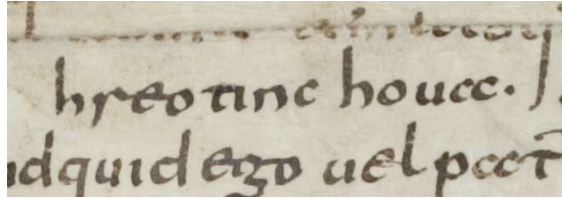 hreotinc houa.
idquid ego uel pat̄